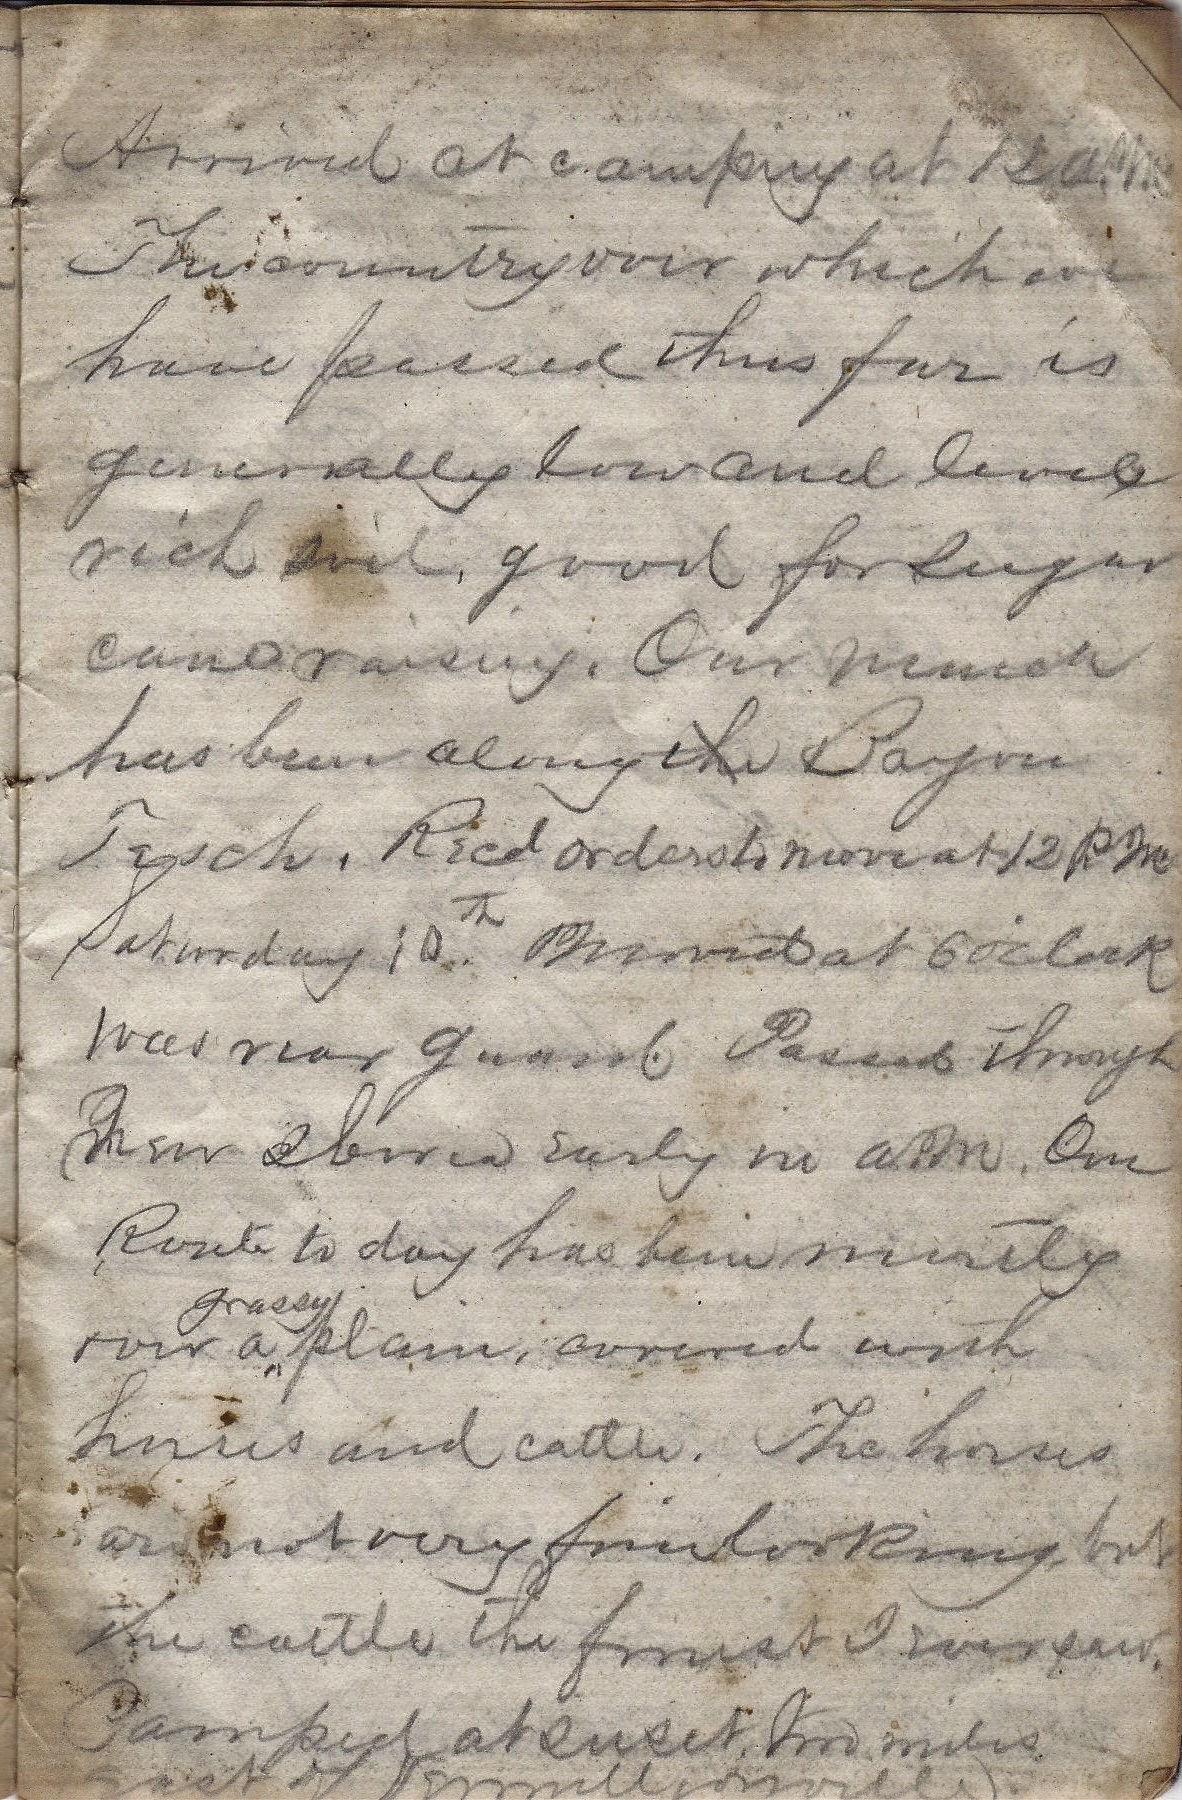 Arrived at camping at 12 a.m.
The country over which we
have passed thus far is
generally low and level
rich soil, good for sugar
cane raising. Our march
has been along the Bayou
Tesch. Recd orders to move at 12 P.M.
Saturday 10th Moved at 6 o'clock
was rear guard. Passed through
New Iberia early in a.m. Our
Route to day has been mostly
grassy
over a plain, covered with
horses and cattle. The horses
are not very fine looking, but
the cattle the finest I ever saw.
Camped at suset, two miles
east of Vermillionville.